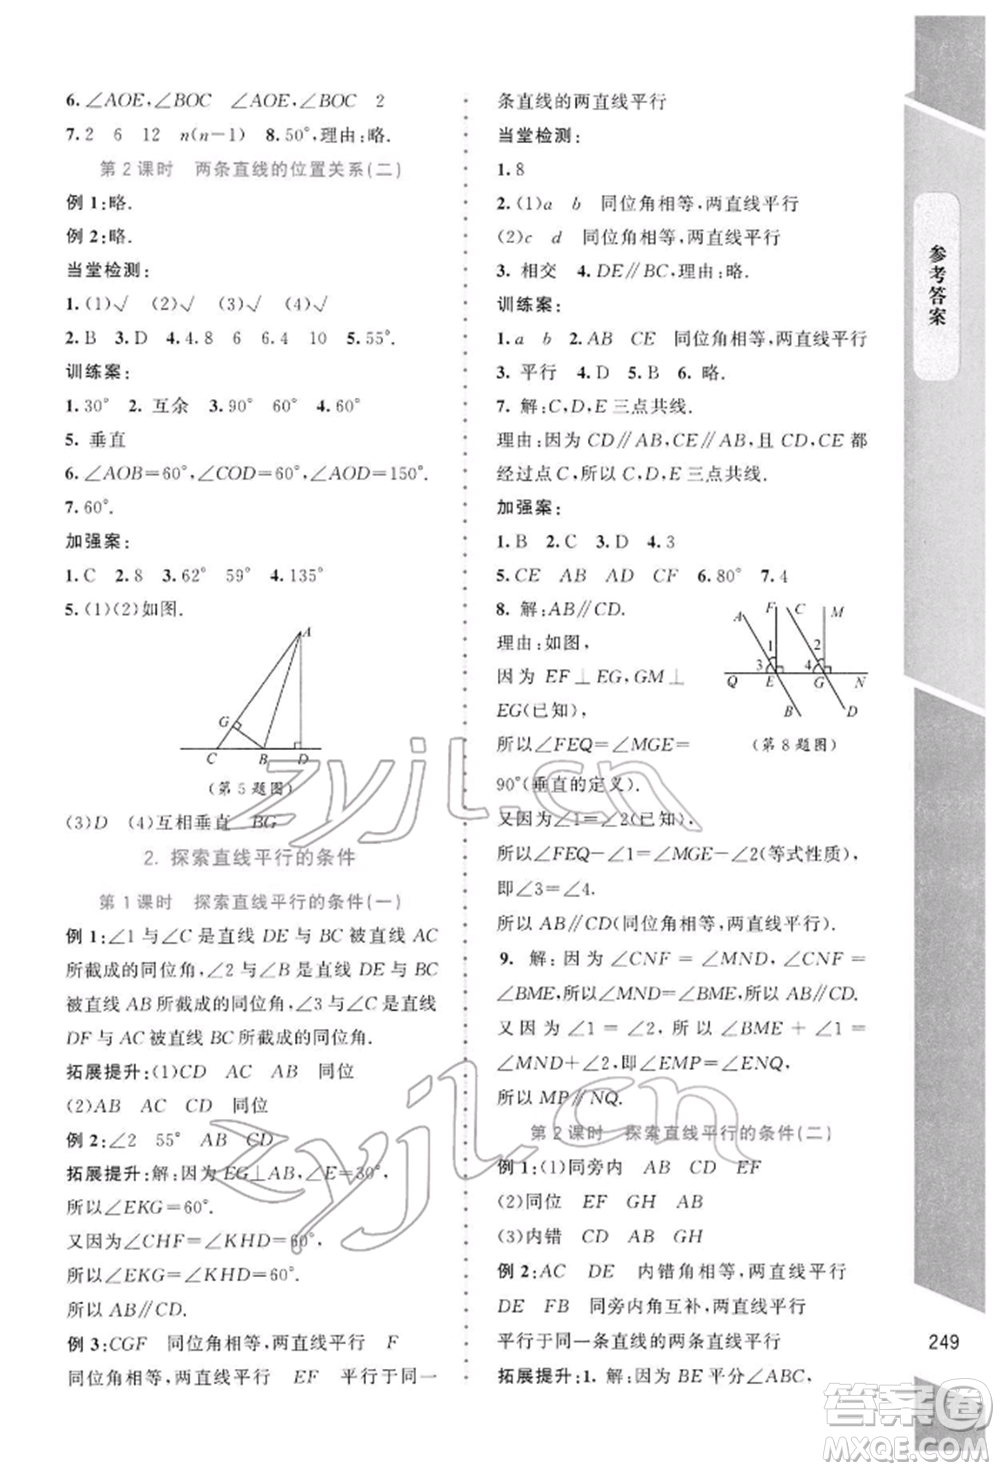 6.∠AOE,∠BOC ∠AOE,∠BOC 2
7.2 6 12 n(n-1) 8.50°,理由:略.
第2课时 两条直线的位置关系(二)
例1:略.
例2:略.
当堂检测:
1.(1)√ (2)√ (3)√ (4)√
2.B 3.D 4.8 6 6.4 10 5.55°
训练案:
1.30° 2. 互余 3.90° 60° 4.60°
5. 垂直
6.∠AOB=60°,∠COD=60°,∠AOD=150°.
7.60°
加强案:
1.C 2.8 3.62° 59° 4.135°
5.(1)(2)如图.
A
G
C B D
(第5题图)
(3)D (4)互相垂直 BG
2. 探索直线平行的条件
第1课时 探索直线平行的条件(一)
例1:∠1与∠C是直线DE与BC被直线AC
所截成的同位角,∠2与∠B是直线DE与BC
被直线AB所截成的同位角,∠3与∠C是直线
DF与AC被直线BC所截成的同位角.
拓展提升:(1)CD AC AB 同位
(2)AB AC CD 同位
例2:∠2 55° AB CD
拓展提升:解:因为EG⊥AB,∠E=30°,
所以∠EKG=60°.
又因为∠CHF=∠KHD=60°,
所以∠EKG=∠KHD=60°.
所以AB∥CD.
例3:CGF 同位角相等,两直线平行 F
同位角相等,两直线平行 EF 平行于同一
条直线的两直线平行
当堂检测:
1.8
2.(1)a b 同位角相等,两直线平行
(2)c d 同位角相等,两直线平行
3. 相交 4.DE∥BC,理由:略.
训练案:
1.a b 2.AB CE 同位角相等,两直线平行
3. 平行 4.D 5.B 6.略.
7. 解:C,D,E三点共线.
理由:因为CD∥AB,CE∥AB,且CD,CE都
经过点C,所以C,D,E三点共线.
加强案:
1.B 2.C 3.D 4.3
5.CE AB AD CF 6.80° 7.4
8. 解:AB∥CD.
理由:如图,
因为EF⊥EG,GM⊥
EG(已知),
所以∠FEQ=∠MGE=
90°(垂直的定义).
A F C M
1 2
3 4
Q E G N
B D
(第8题图)
又因为∠1=∠2(已知),
所以∠FEQ-∠1=∠MGE-∠2(等式性质),
即∠3=∠4.
所以AB∥CD(同位角相等,两直线平行).
9. 解:因为∠CNF=∠MND,∠CNF=
∠BME,所以∠MND=∠BME,所以AB∥CD.
又因为∠1=∠2,所以∠BME+∠1=
∠MND+∠2,即∠EMP=∠ENQ.
所以MP∥NQ.
第2课时 探索直线平行的条件(二)
例1:(1)同旁内 AB CD EF
(2)同位 EF GH AB
(3)内错 EF GH CD
例2:AC DE 内错角相等,两直线平行
DE FB 同旁内角互补,两直线平行
平行于同一条直线的两条直线平行
拓展提升:1. 解:因为BE平分∠ABC,
参考答案
249
zyjl.cn
zyjl.cn
答案圈
MXQE.COM